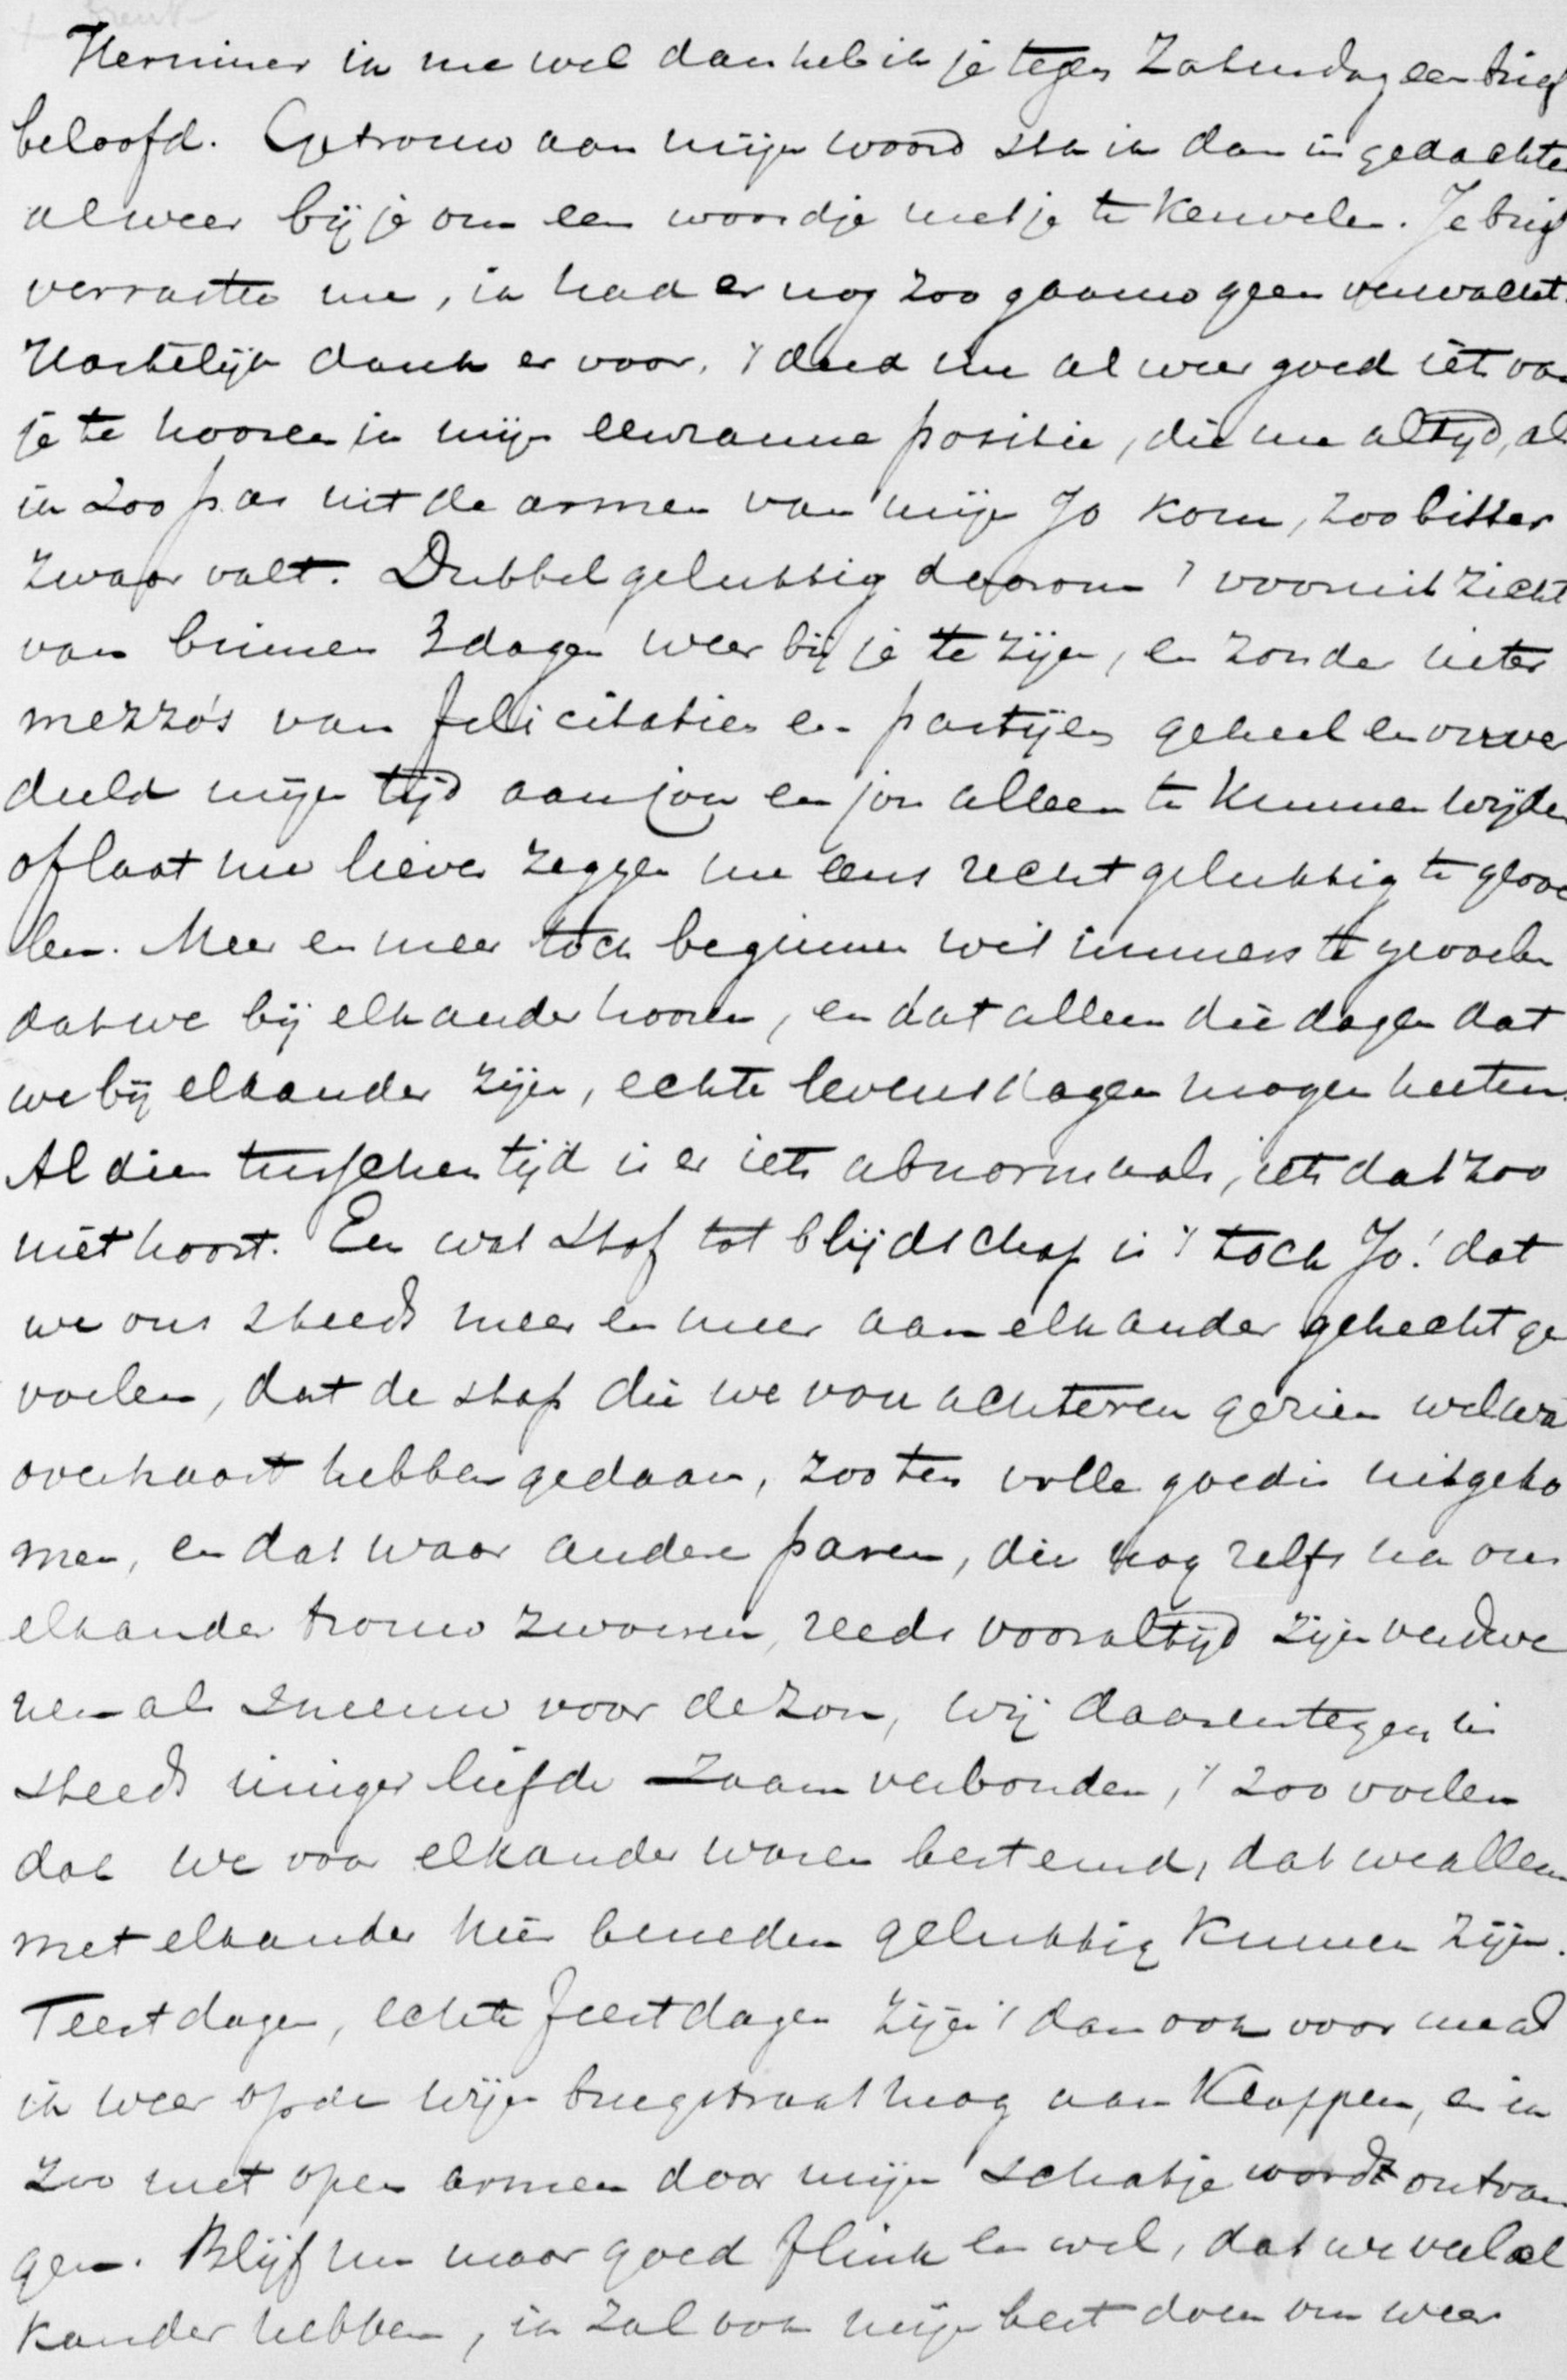 Herinner ik me wel dan heb ik je tegen Zaterdag een brief
beloofd. Getrouw aan mijn woord sta ik dan in gedachte
alweer bij je om een woordje met je te keuvelen. Je brief
verraste me, ik had er nog zoo gauw geen verwacht.
Hartelijk dank er voor, 't deed me al weer goed iets van
je te hooren in mijn eenzame positie, die me altijd, als
ik zoo pas uit de armen van mijn Jo kom, zoo bitter
zwaar valt. Dubbel gelukkig daarom 't vooruitzicht
van binnen 3 dagen weer bij je te zijn, en zonder inter
mezzo's van felicitaties en partijen geheel en onver
deeld mijn tijd aan jou en jou alleen te kunnen wijden
of laat me liever zeggen me eens recht gelukkig te gevoe
len. Meer en meer toch beginnen wij immers te gevoelen
dat we bij elkander hooren, en dat alleen die dagen dat
we bij elkander zijn, echte levensdagen mogen heeten.
Al dien tusschentijd is er iets abnormaals, iets dat zoo
niet hoort. En wat stof tot blijdschap is 't toch Jo! dat
we ons steeds meer en meer aan elkander gehecht ge
voelen, dat de stap die we van achteren gezien wel wa
overhaast hebben gedaan, zoo ten volle goed is uitgeko
men, en dat waar andere paren, die nog zelfs na ons
elkander trouw zwoeren, reeds voor altijd zijn verdwe
nen als sneeuw voor de zon, wij daarentegen in
steeds inniger liefde zaam verbonden, 't zoo voelen
dat we voor elkander waren bestemd, dat we alleen
met elkander hier beneden gelukkig kunnen zijn.
Feestdagen, echte feestdagen zijn 't dan ook voor me als
ik weer op de Wijnbrugstraat mag aan kloppen, en ik
zoo met open armen door mijn schatje wordt ontvan
gen. Blijf nu maar goed flink en wel, dat we veel el
kander hebben, ik zal ook mijn best doen om weer